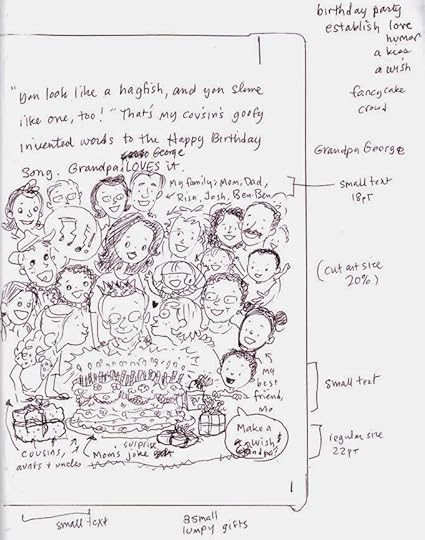 birthday party
establish love
humor
a kiss
a wish
fancy cake
crowd
"you look like a hagfish, and you slime
like one, too!" That's my cousin's goofy
invented words to the Happy Birthday
George
song. Grandpa LOVES it.
Grandpa George
My family: Mom, Dad,
Risa, Josh, Ben-Ben
small text
18pt
(cut art size
20%)
my
best
friend,
Mo
small text
Make a
wish,
Grandpa!
regular size
22pt
cousins,
aunts + uncles
surprise
Mom's joke
small text
3 small
lumpy gifts